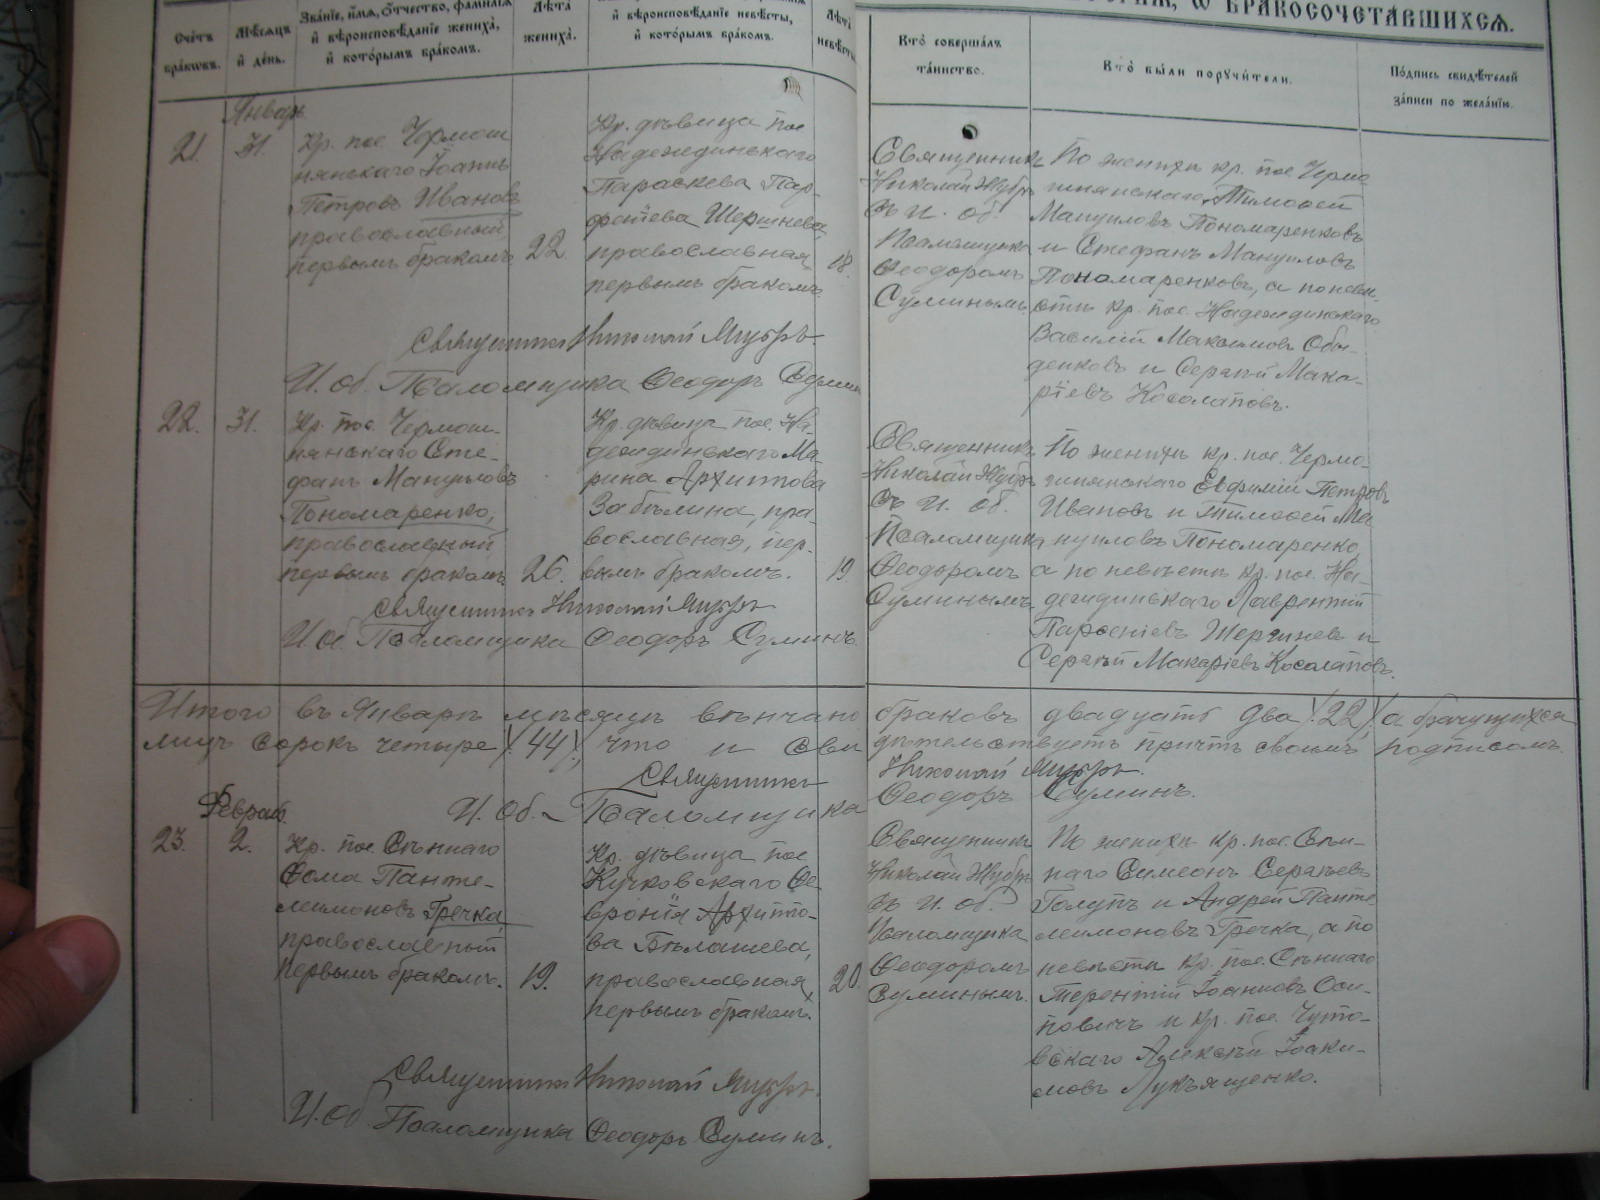 Счетъ браковъ.
Мѣсяцъ и день.
Званіе, имя, отчество, фамилія
и вѣроисповѣданіе жениха,
и которымъ бракомъ.
Лѣта
жениха.
и вѣроисповѣданіе невѣсты,
и которымъ бракомъ.
Лѣта
невѣсты
о бракосочетавшихся.
Кто совершалъ
таинство.
Кто были поручители.
Подпись свидѣтелей
записи по желанію.
Январь
21.
31.
Кр. пос. Чермош
нянскаго Іоаннъ
Петровъ Ивановъ
православный,
первымъ бракомъ
22.
Кр. дѣвица пос
Надеждинскаго
Параскева Пар-
феніева Шершнева,
православная,
первымъ бракомъ
18.
Священникъ
Николай
съ И. об.
Псаломщика
Ѳеодоромъ
Суминымъ.
По женихѣ кр. пос. Чермо-
шнянскаго Тимоѳей
Мануиловъ Пономаренковъ
и Стефанъ Мануиловъ
Пономаренковъ, а по невѣ-
стѣ кр. пос. Надеждинскаго
Василій Максимовъ Обы-
денковъ и Сергѣй Мака-
ріевъ Косолаповъ.
Священникъ Николай
И. об. Псаломщика Ѳеодоръ Сумин
22.
31.
Кр. пос. Чермош-
нянскаго Сте-
фанъ Мануиловъ
Пономаренко,
православный
первымъ бракомъ
26.
Кр. дѣвица пос. На-
деждинскаго Ма-
рина Архипова
Забѣлина, пра-
вославная, пер-
вымъ бракомъ.
19
Священникъ
Николай
съ И. об.
Псаломщика
Ѳеодоромъ
Суминымъ.
По женихѣ кр. пос. Чермо-
шнянскаго Евфимій Петровъ
Ивановъ и Тимоѳей Ма
нуиловъ Пономаренко,
а по невѣстѣ кр. пос. На-
деждинскаго Лаврентій
Парѳеніевъ Шершнев и
Сергѣй Макаріевъ Косолаповъ.
Священникъ Николай
И. об. Псаломщика Ѳеодоръ Суминъ.
Итого въ Январѣ мѣсяцѣ вѣнчано браковъ двадцать два /22/, а брачущихся
лицъ сорокъ четыре /44/, что и сви дѣтельствуетъ причтъ своимъ подписомъ.
Священникъ Николай
И. об. Псаломщика Ѳеодоръ Суминъ.
Феврал.
23.
2.
Кр. пос. Сѣннаго
Ѳома Панте-
леимоновъ Гречка,
православный
первымъ бракомъ.
19.
Кр. дѣвица пос
Кучковскаго Ѳе
вронія Архипо-
ва Бѣлашева,
православная,
первымъ бракомъ.
20.
Священникъ
Николай
съ И. об.
Псаломщика
Ѳеодоромъ
Суминымъ.
По женихѣ кр. пос. Сѣн-
наго Симеонъ Сергѣевъ
Голупъ и Андрей Панте
леимоновъ Гречка, а по
невѣстѣ кр. пос. Сѣннаго
Терентій Іоанновъ Оси-
повичъ и кр. пос. Чуто-
вскаго Алексѣй Іоаки-
мовъ Лукьященко.
Священникъ Николай
И. об. Псаломщика Ѳеодоръ Суминъ.